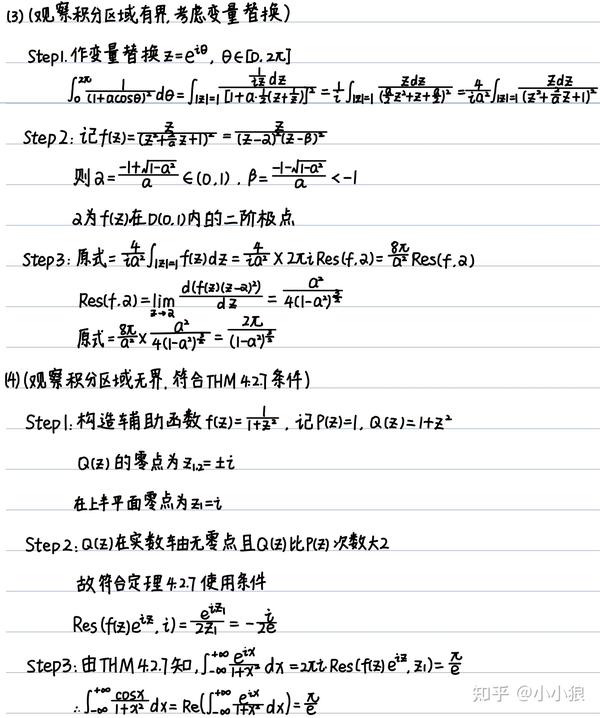 (3) (观察积分区域有界,考虑变量替换)
Step1. 作变量替换 z=e^{iθ}, θ∈[0, 2π]
∫_0^{2π} 1/(1+acosθ)^2 dθ = ∫_{|z|=1} (1/(iz) dz)/[1+a·1/2(z+1/z)]^2 = 1/i ∫_{|z|=1} zdz/(a/2 z^2+z+a/2)^2 = 4/(ia^2) ∫_{|z|=1} zdz/(z^2+2/a z+1)^2
Step2: 记f(z)= z/(z^2+2/a z+1)^2 = z/((z-α)^2(z-β)^2)
则 α= (-1+√(1-a^2))/a ∈(0,1), β= (-1-√(1-a^2))/a < -1
α为f(z)在D(0,1)内的二阶极点
Step3: 原式= 4/(ia^2) ∫_{|z|=1} f(z)dz = 4/(ia^2) × 2πi Res(f,α) = 8π/a^2 Res(f,α)
Res(f,α)= lim_{z→α} d(f(z)(z-α)^2)/dz = a^2/(4(1-a^2)^{3/2})
原式= 8π/a^2 × a^2/(4(1-a^2)^{3/2}) = 2π/(1-a^2)^{3/2}
(4) (观察积分区域无界,符合THM 4.2.7条件)
Step1: 构造辅助函数 f(z)= 1/(1+z^2), 记P(z)=1, Q(z)=1+z^2
Q(z)的零点为 z_{1,2}=±i
在上半平面零点为z_1=i
Step2: Q(z)在实数轴无零点且Q(z)比P(z)次数大2
故符合定理4.2.7使用条件
Res(f(z)e^{iz}, i)= e^{iz_1}/(2z_1) = -i/(2e)
Step3: 由THM 4.2.7知, ∫_{-∞}^{+∞} e^{ix}/(1+x^2) dx = 2πi Res(f(z)e^{iz}, z_1)= π/e
∴ ∫_{-∞}^{+∞} cosx/(1+x^2) dx = Re(∫_{-∞}^{+∞} e^{ix}/(1+x^2) dx) = π/e
知乎 @小小狼